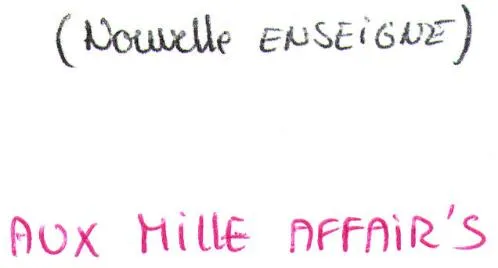 (Nouvelle ENSEiGNE)
AUX MillE AFFAiR'S